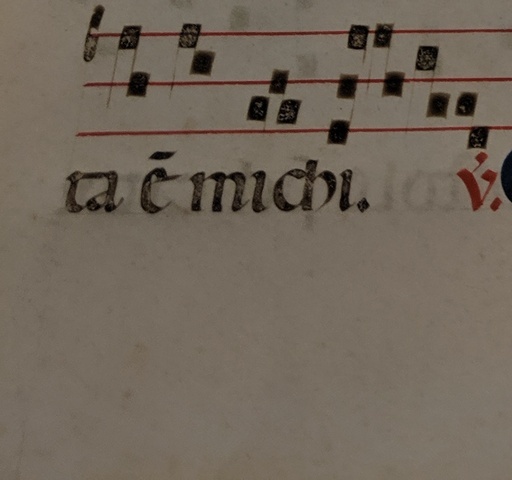 ta ē michi. v̇.